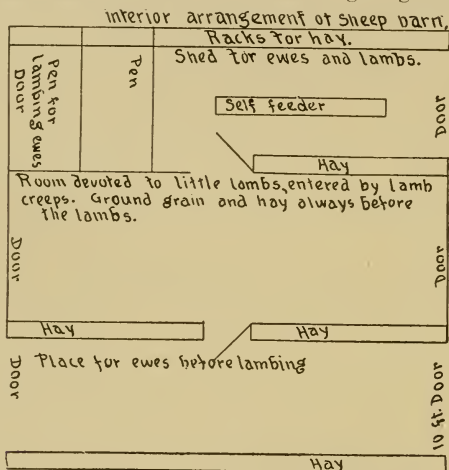 interior arrangement of sheep barn.
Racks for hay.
Pen for
lambing ewes
Door
Pen
Shed for ewes and lambs.
Self feeder
Door
Hay
Room devoted to little lambs, entered by lamb
creeps. Ground grain and hay always before
the lambs.
Door
Door
Hay
Hay
Door
Place for ewes before lambing
10 ft. Door
Hay